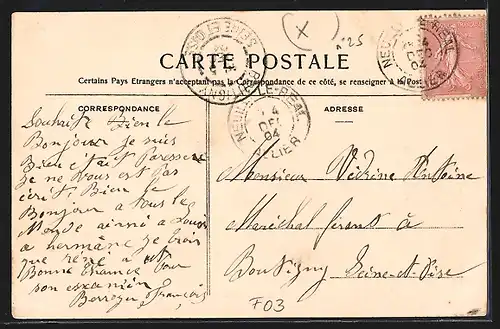 (x)
n°25
CARTE POSTALE
Certains Pays Etrangers n'acceptant pas la Correspondance de ce côté, se renseigner à la Poste
CORRESPONDANCE
ADRESSE
Souhaite Bien le
Bonjour je suis
Bien était Paresseux
je ne Vous est pas
écrit, Bien le
Bonjour a tous le
Monde ainsi a Louis
a je crois
que René a
Bonne Chance Pour
son examin
François
Monsieur Védrine Antoine
Maréchal ferant à
Boutigny Seine-et-Oise
F03
NEUILLY-LE-REAL
4
DEC
04
ALLIER
NEUILLY-LE-REAL
4
DEC
04
ALLIER
BOUTIGNY
SEINE-ET-OISE